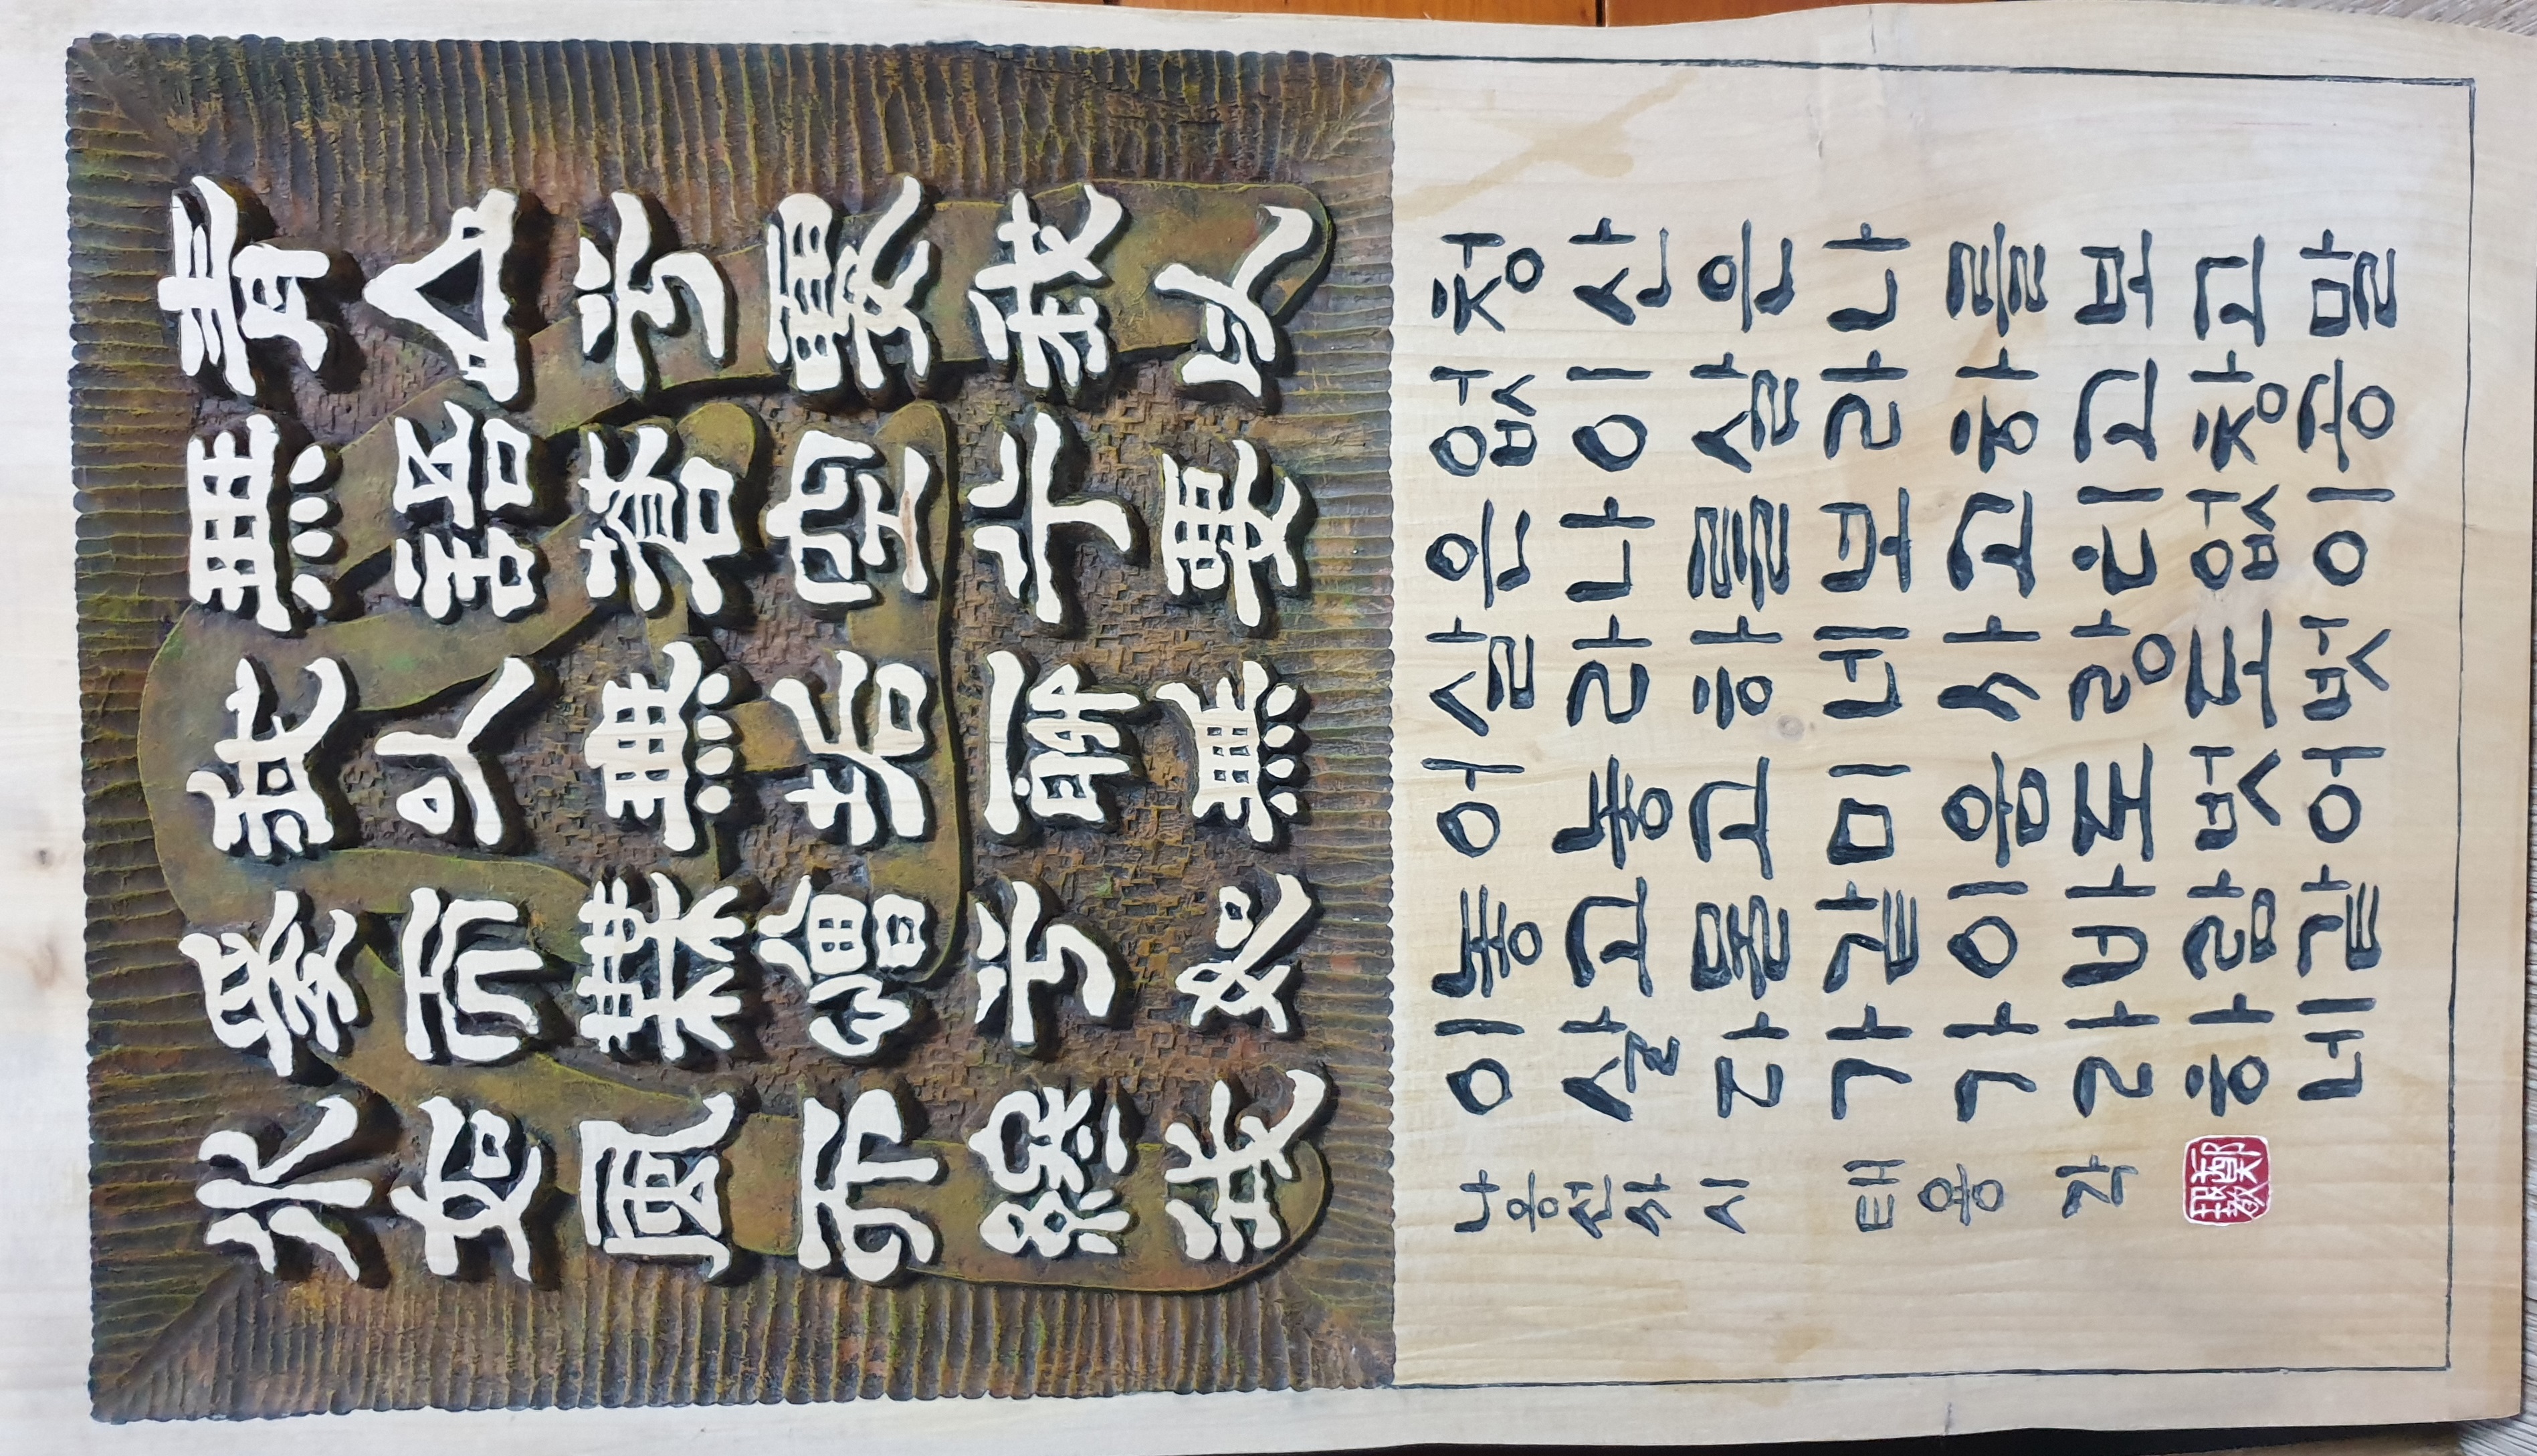 靑山兮要我以
無語蒼空兮要
我以無垢聊無
愛而無憎兮如
水如風而終我
청산은나를보고말
없이살라하고창공
은나를보고티없이
살라하네사랑도벗
어놓고미움도벗어
놓고물같이바람같
이살다가가라하네
나옹선사 시 각